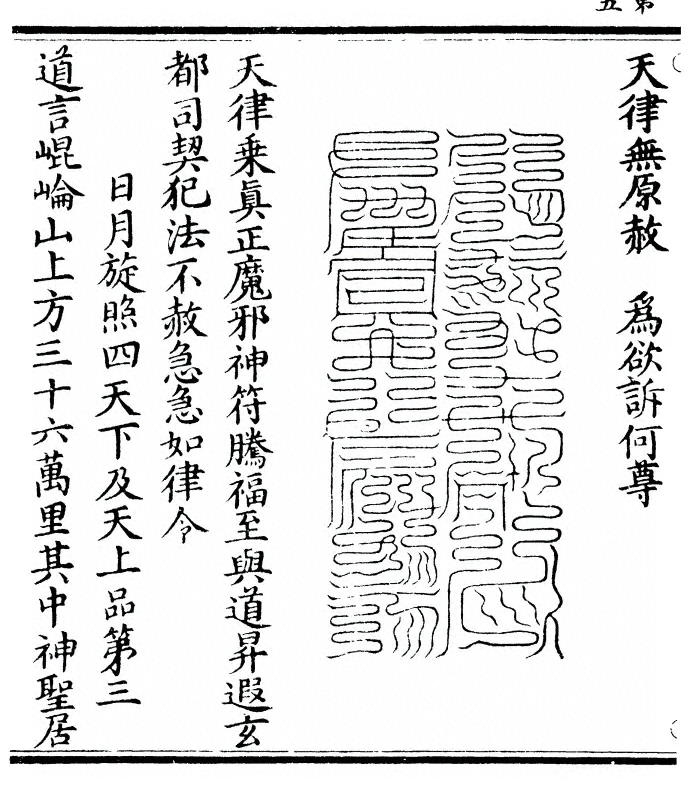 第
五
天律無原赦　為欲訴何尊
天律乗眞正魔邪神符騰福至與道昇遐玄
都司契犯法不赦急急如律令
日月旋照四天下及天上品第三
道言崐崘山上方三十六萬里其中神聖居